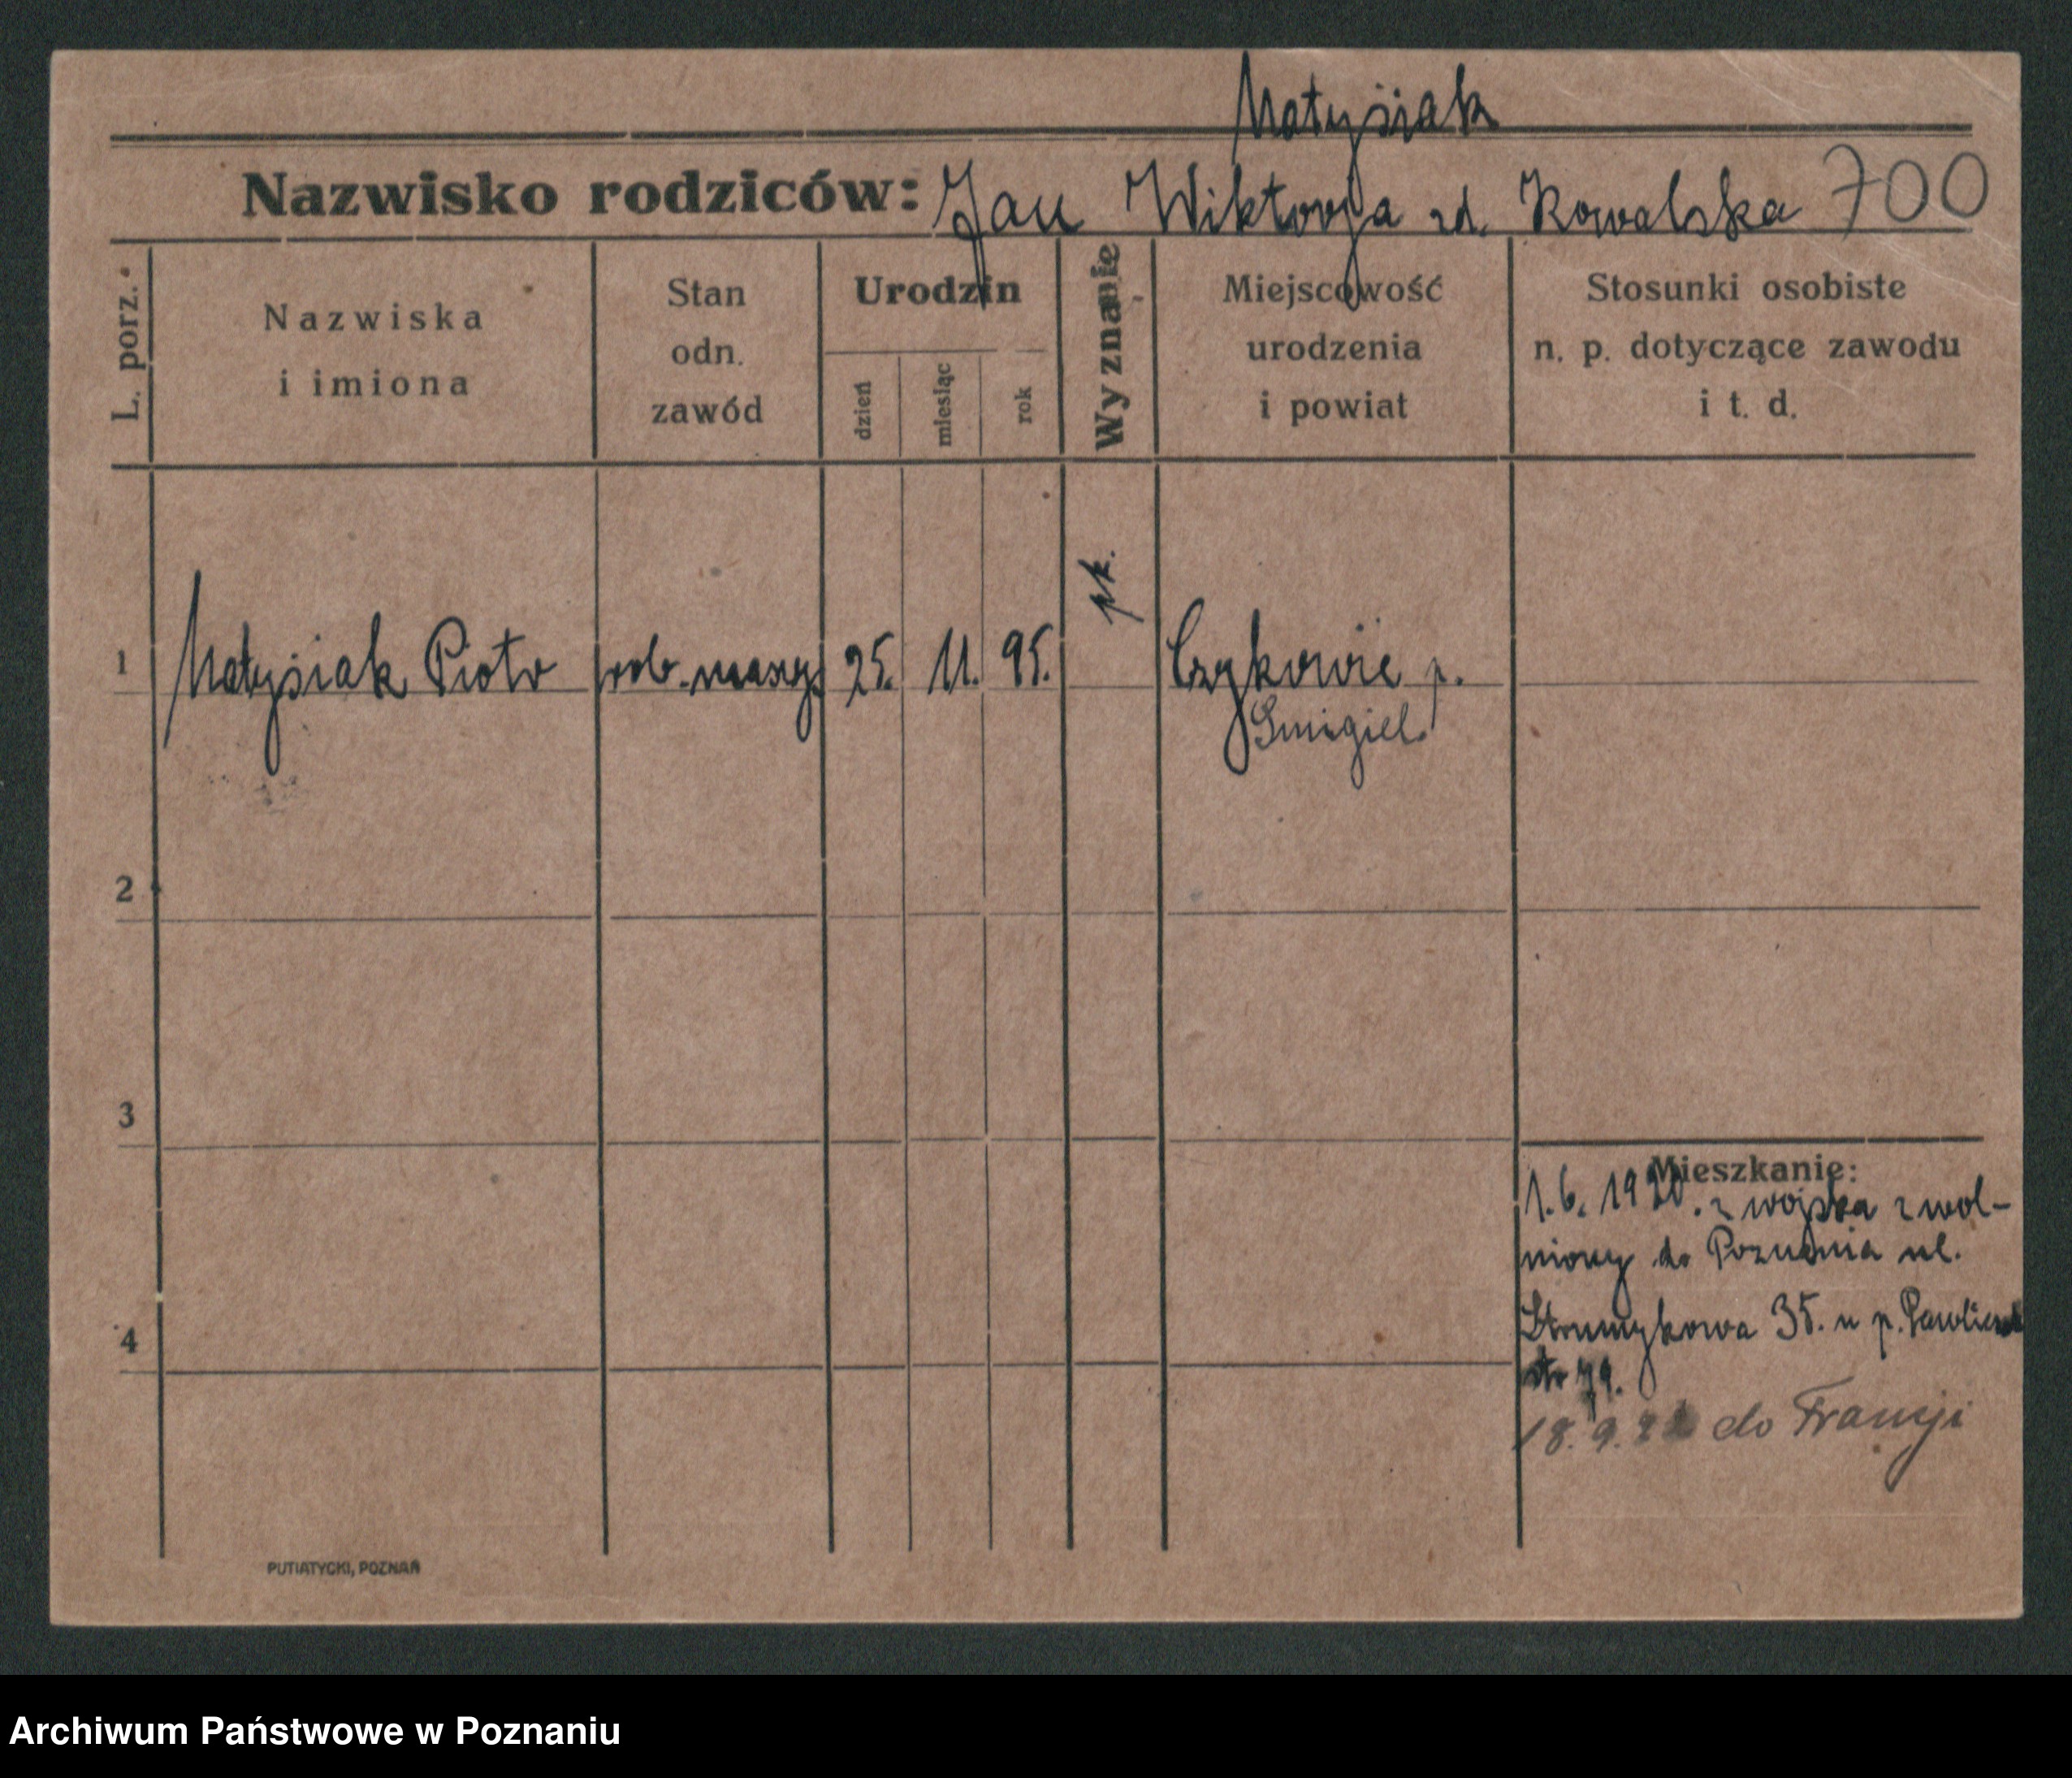 Matysiak
Nazwisko rodziców: Jan Wiktorja zd. Kowalska 700
L. porz.
Nazwiska
i imiona
Stan
odn.
zawód
Urodzin
dzień
miesiąc
rok
Wyznanie
Miejscowość
urodzenia
i powiat
Stosunki osobiste
n. p. dotyczące zawodu
i t. d.
1 Matysiak Piotr rob. maszy. 25. 11. 95. Czykowie p.
Smigiel.
2
3
4
Mieszkanie:
1.6. 1920. z wojska zwol-
niony do Poznania ul.
Strumykowa 35. u p.
18.9. do Francji
PUTIATYCKI, POZNAŃ
Archiwum Państwowe w Poznaniu